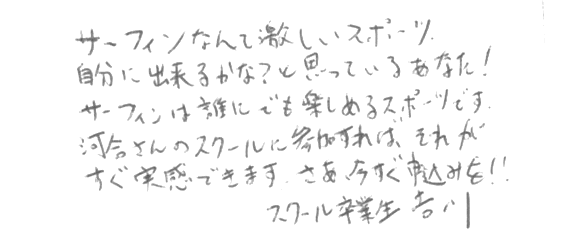 サーフィンなんて激しいスポーツ.
自分に出来るかな?と思っているあなた!
サーフィンは誰にでも楽しめるスポーツです.
河合さんのスクールに参加すれば、それが
すぐ実感できます.さあ、今すぐ申込みを!!
スクール卒業生 吉川